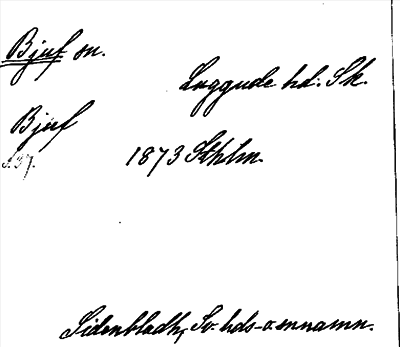 Bjuf sn.
Luggude hd. Sk.
Bjuf
s. 37. 1873 Sthlm.
Sidenbladh, Sv. hds- o. snnamn.